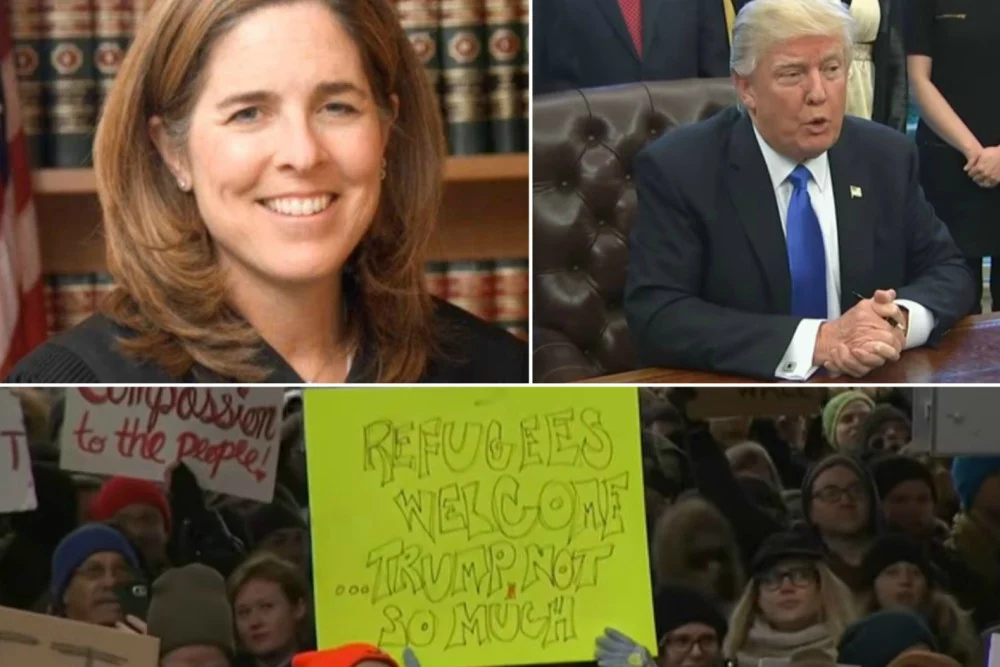 Compassion
to the people!
T
REFUGEES
WELCOME
...TRUMP, NOT
SO MUCH